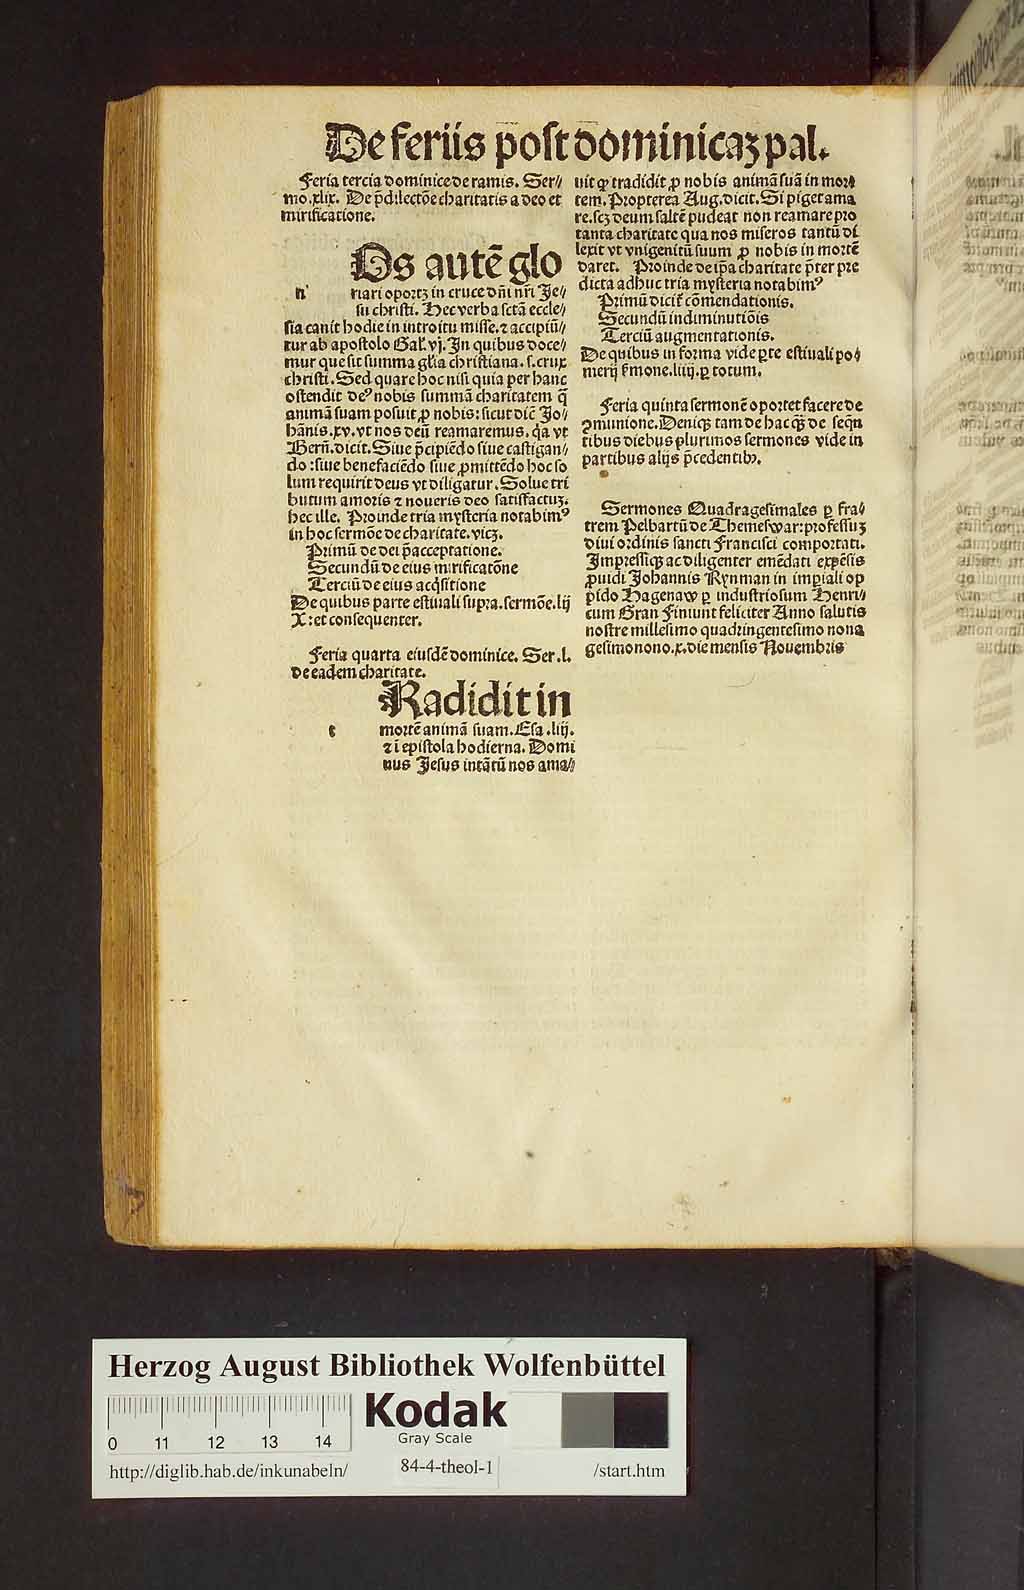 De feriis post dominicaꝫ pal.
Feria tercia dominice de ramis. Ser⸗
mo.xlix. De p̄dilectōe charitatis a deo et
mirificatione.
Os autē glo
n
riari oportꝫ in cruce dñi nr̄i Je⸗
su christi. Hec verba sctā eccle⸗
sia canit hodie in introitu misse. ⁊ accipiū⸗
tur ab apostolo Gal. vj. In quibus doce⸗
mur que sit summa gl̄ia christiana. s. crux
christi. Sed quare hoc nisi quia per hanc
ostendit deꝰ nobis summā charitatem q̄
animā suam posuit ꝓ nobis: sicut dic̄ Jo⸗
hānis. xv. vt nos deū reamaremus. q̇a vt
Bern̄. dicit. Siue p̄cipiēdo siue castigan⸗
do: siue benefaciēdo siue ꝓmittēdo hoc so
lum requirit deus vt diligatur. Solue tri
butum amoris ⁊ noueris deo satisfactuꝫ.
hec ille. Proinde tria mysteria notabimꝰ
in hoc sermōe de charitate. vicꝫ.
Primū de dei p̄acceptatione.
Secundū de eius mirificatōne
Terciū de eius acq̇sitione
De quibus parte estiuali supra. sermōe. lij
X: et consequenter.
Feria quarta eiusdē dominice. Ser. l.
de eadem charitate.
Radidit in
t
mortē animā suam. Esa. liij.
⁊ ī epistola hodierna. Domi
nus Jesus intātū nos ama⸗
uit ꝙ tradidit ꝓ nobis animā suā in mor⸗
tem. Propterea Aug. dicit. Si piget ama
re. scꝫ deum saltē pudeat non reamare pro
tanta charitate qua nos miseros tantū di
lexit vt vnigenitū suum ꝓ nobis in mortē
daret. Proinde de ip̄a charitate p̄ter pre
dicta adhuc tria mysteria notabimꝰ
Primū dicit᷑ cōmendationis.
Secundū indiminutiōis
Terciū augmentationis.
De quibus in forma vide ꝑte estiuali po⸗
merij s̄mone. liiij. ꝑ totum.
Feria quinta sermonē oportet facere de
ꝯmunione. Deniqꝫ tam de hac qꝫ̄ de seq̄n
tibus diebus plurimos sermones vide in
partibus alijs p̄cedentibꝰ.
Sermones Quadragesimales ꝑ fra⸗
trem Pelbartū de Themeswar: professuꝫ
diui ordinis sancti Francisci comportati.
Impressiqꝫ ac diligenter emēdati expēsis
ꝓuidi Johannis Rynman in imꝑiali op
pido Hagenaw ꝑ industriosum Henri⸗
cum Gran Finiunt feliciter Anno salutis
nostre millesimo quadringentesimo nona
gesimonono. x. die mensis Nouembris
Herzog August Bibliothek Wolfenbüttel
0 11 12 13 14
Kodak
Gray Scale
http://diglib.hab.de/inkunabeln/ 84-4-theol-1 /start.htm